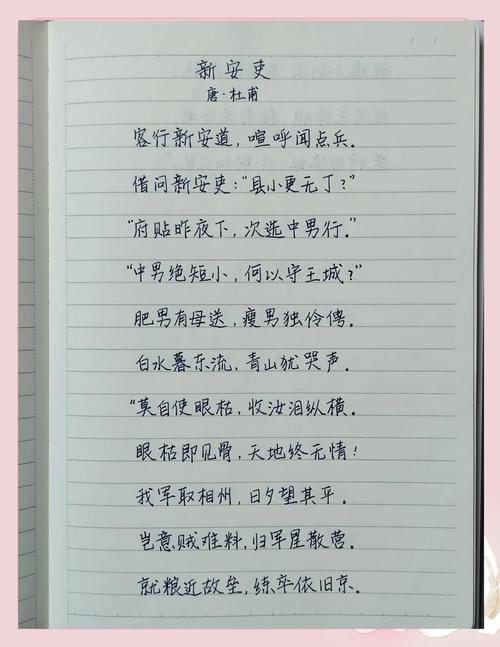 新安吏
唐·杜甫
客行新安道，喧呼闻点兵。
借问新安吏：“县小更无丁？”
“府贴昨夜下，次选中男行。”
“中男绝短小，何以守王城？”
肥男有母送，瘦男独伶俜。
白水暮东流，青山犹哭声。
“莫自使眼枯，收汝泪纵横。
眼枯即见骨，天地终无情！
我军取相州，日夕望其平。
岂意贼难料，归军星散营。
就粮近故垒，练卒依旧京。